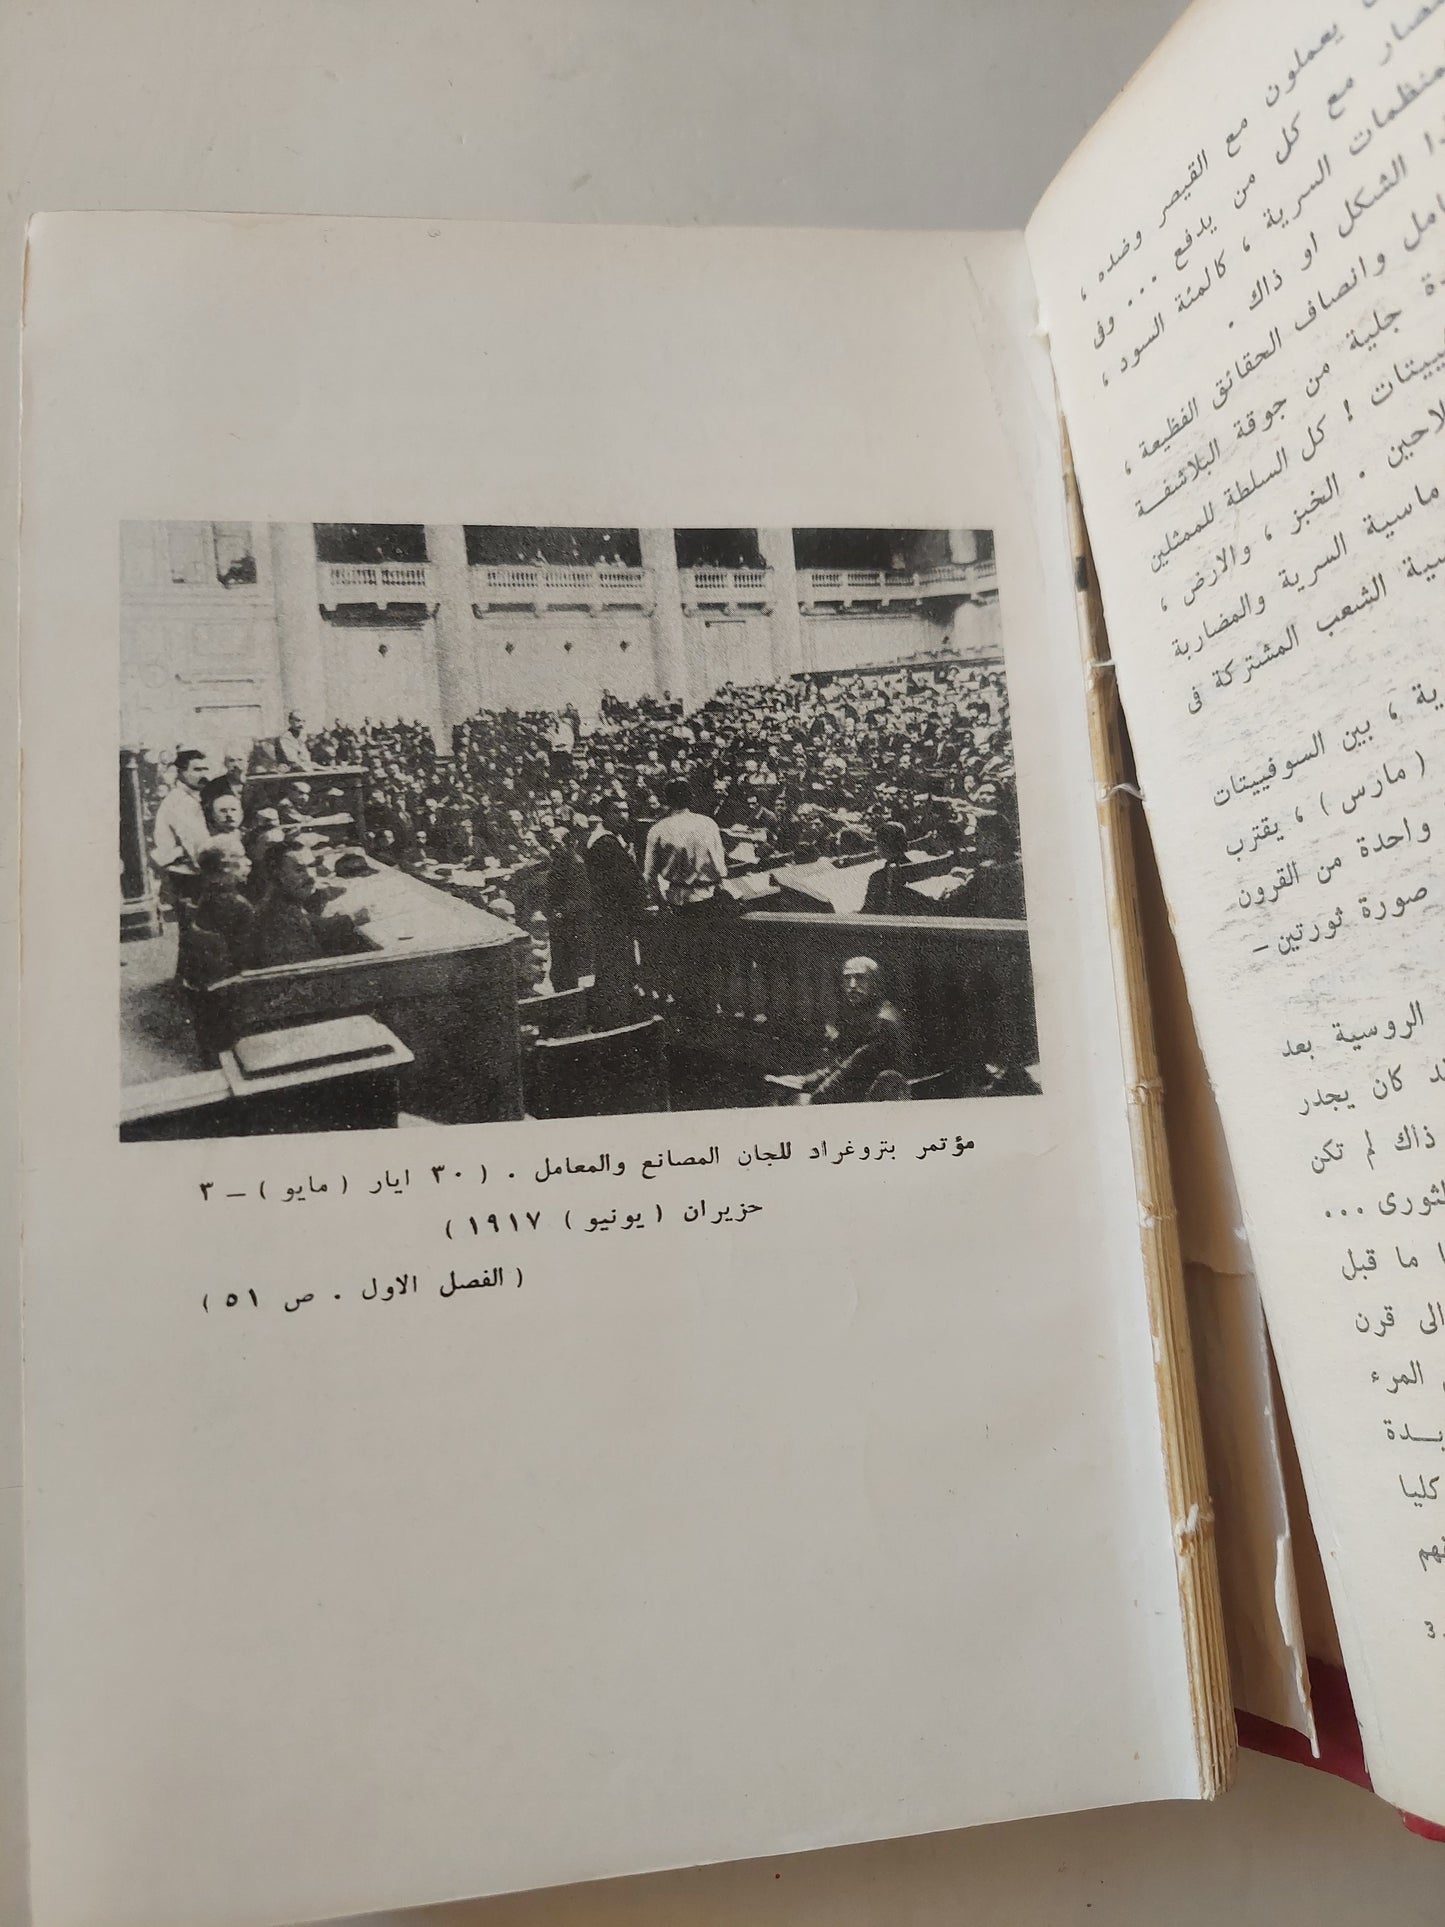 مؤتمر بتروغراد للجان المصانع والمعامل . ( ٣٠ ايار ( مايو ) — ٣
حزيران ( يونيو ) ١٩١٧ )
( الفصل الاول . ص ٥١ )
يعملون مع القيصر وضده ،
مع كل من يدفع ... وفى
السرية ، كالمئة السود ،
الشكل او ذاك .
وانصاف الحقائق الفظيعة ،
جلية من جوقة البلاشفة
! كل السلطة للممثلين
. الخبز ، والارض ،
السرية والمضاربة
الشعب المشتركة فى
، بين السوفييتات
( مارس ) ، يقترب
واحدة من القرون
صورة ثورتين —
الروسية بعد
كان يجدر
ذاك لم تكن
...
ما قبل
الى قرن
المرء
كليا